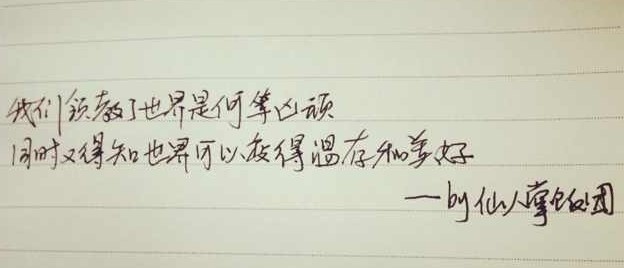 我们领教了世界是何等凶顽
同时又得知世界可以变得温存和美好
—by仙人掌的饭团